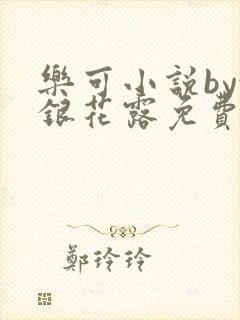 樂可小說by
銀花露免費
鄭玲玲